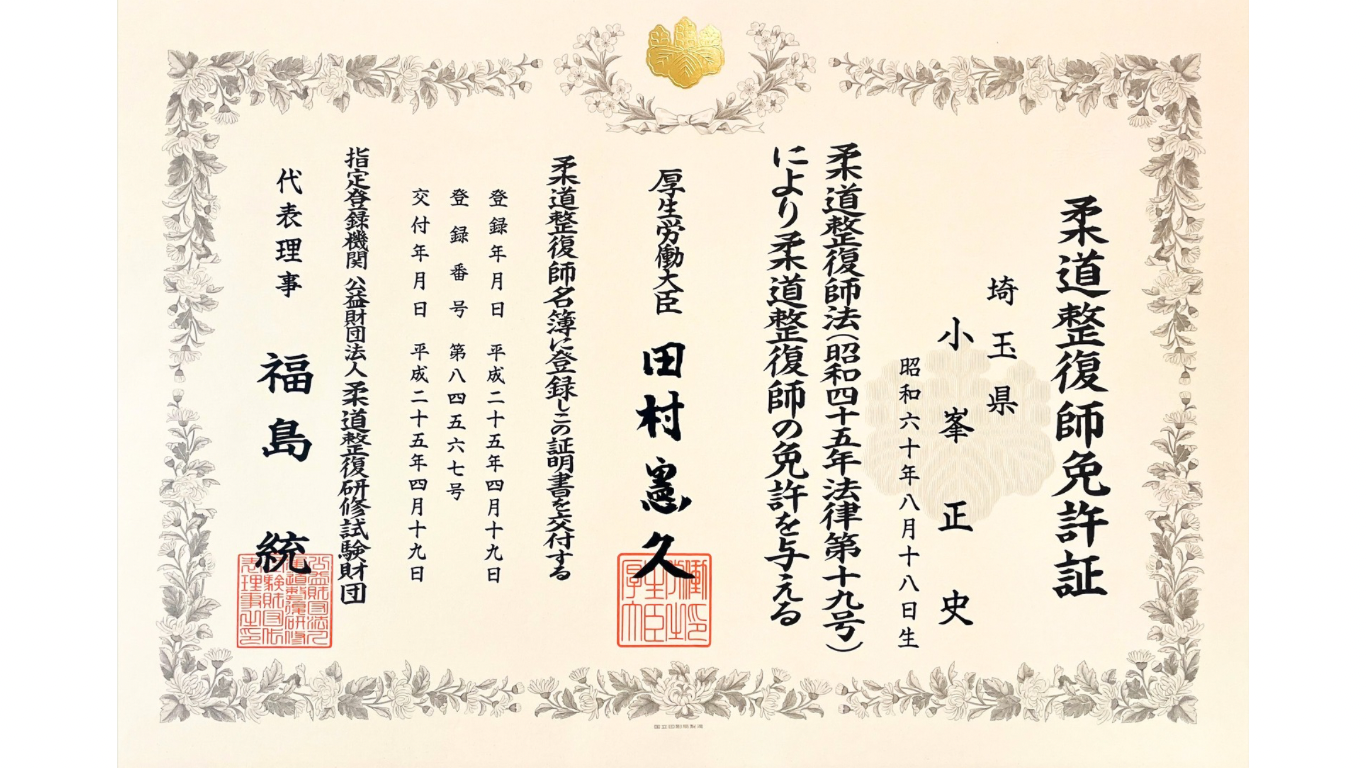 柔道整復師免許証
埼玉県
小峯正史
昭和六十年八月十八日生
柔道整復師法(昭和四十五年法律第十九号)
により柔道整復師の免許を与える
厚生労働大臣 田村憲久
柔道整復師名簿に登録しこの証明書を交付する
登録年月日 平成二十五年四月十九日
登録番号 第八四五六七号
交付年月日 平成二十五年四月十九日
指定登録機関 公益財団法人柔道整復研修試験財団
代表理事 福島統